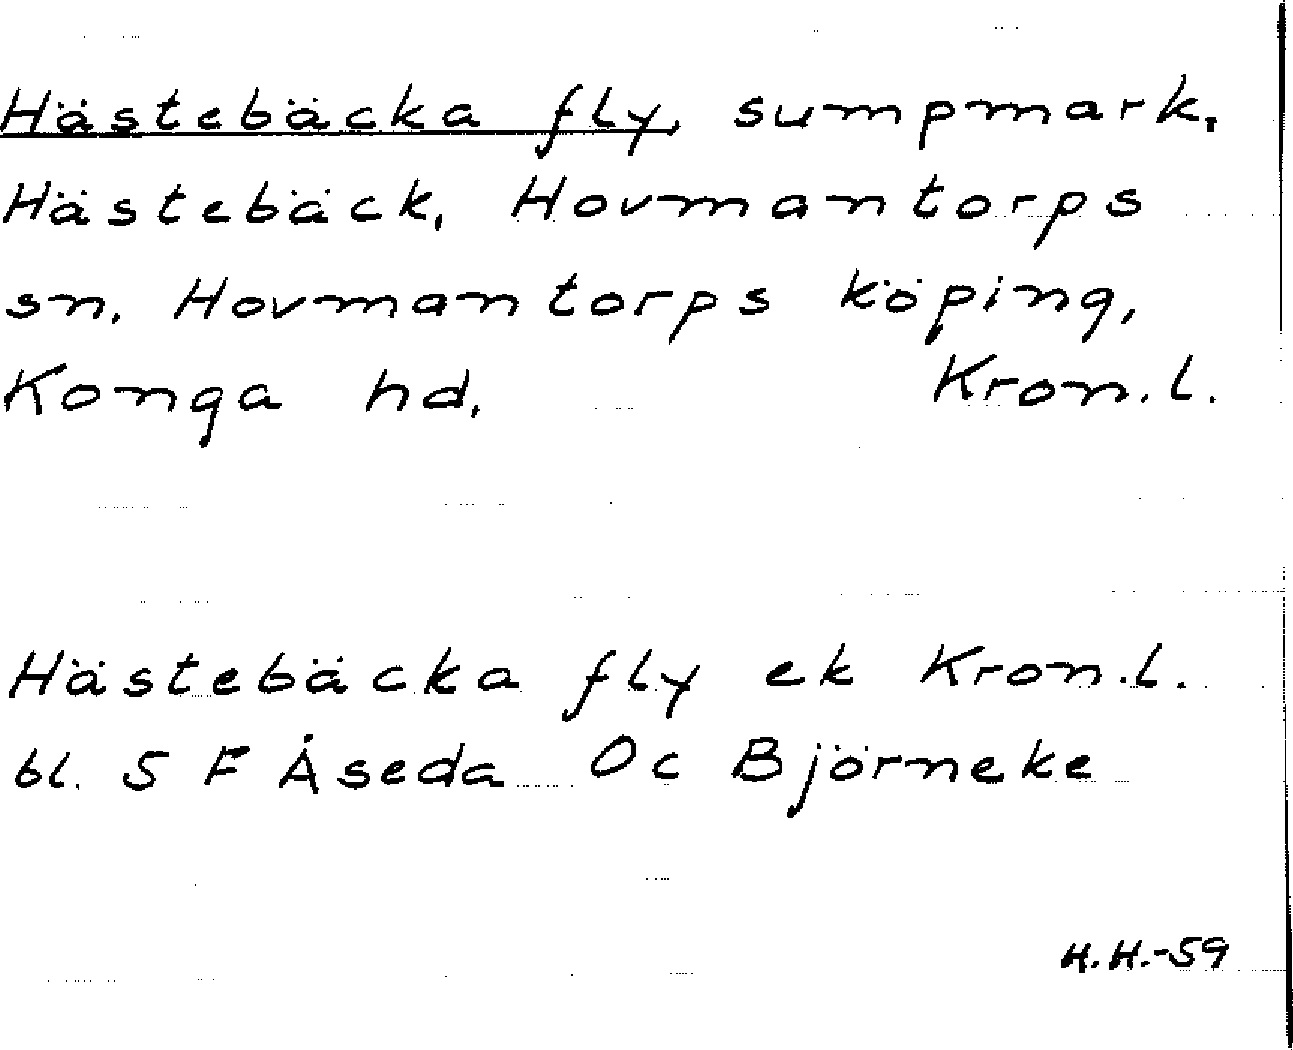 Hästebäcka fly, sumpmark,
Hästebäck, Hovmantorps
sn. Hovmantorps köping,
Konga hd. Kron.l.
Hästebäcka fly ek Kron.l.
bl. 5 F Åseda Oc Björneke
H.H.-59